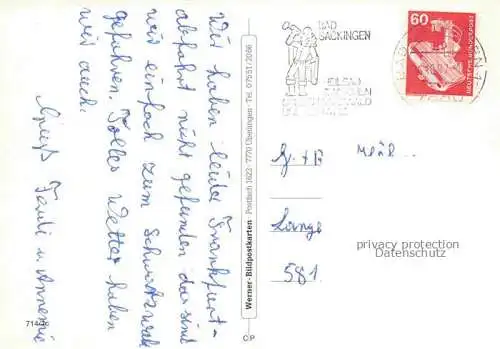 Wir haben leider Frankfurt-
abfahrt nicht gefunden da sind
wir einfach zum Schwarzwald
gefahren. Tolles Wetter haben
wir auch.
Gruß
Werner-Bildpostkarten · Postfach 1622 · 7770 Überlingen · Tel. 07551/2066
714/36
C/P
BAD
SÄCKINGEN
60
DEUTSCHE BUNDESPOST
G. + B
Lange
581
privacy protection
Datenschutz